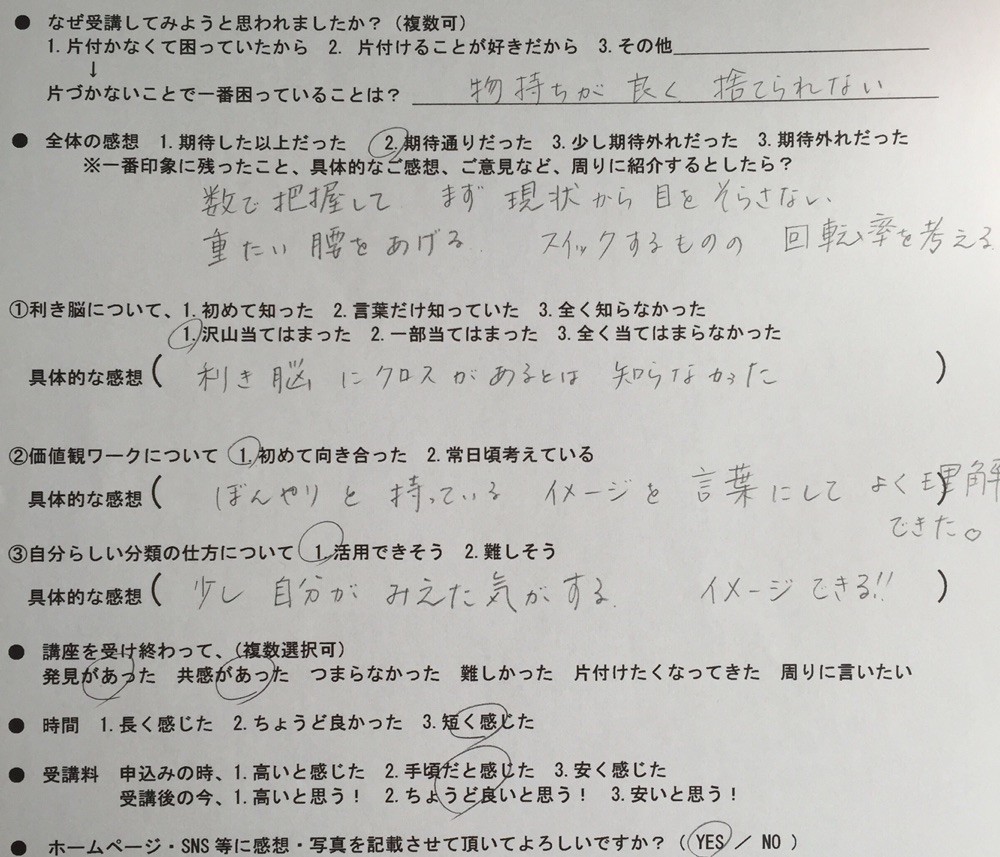 ● なぜ受講してみようと思われましたか？（複数可）
1. 片付かなくて困っていたから 2. 片付けることが好きだから 3. その他
↓
片づかないことで一番困っていることは？ 物持ちが良く 捨てられない
● 全体の感想 1. 期待した以上だった 2. 期待通りだった 3. 少し期待外れだった 3. 期待外れだった
※一番印象に残ったこと、具体的なご感想、ご意見など、周りに紹介するとしたら？
数で把握して まず 現状から目をそらさない
重たい腰をあげる. スイックするものの 回転率を考える
①利き脳について、1. 初めて知った 2. 言葉だけ知っていた 3. 全く知らなかった
1. 沢山当てはまった 2. 一部当てはまった 3. 全く当てはまらなかった
具体的な感想( 利き脳にクロスがあるとは 知らなかった )
②価値観ワークについて 1. 初めて向き合った 2. 常日頃考えている
具体的な感想( ぼんやりと持っている イメージを 言葉にして よく理解 )
できた。
③自分らしい分類の仕方について 1. 活用できそう 2. 難しそう
具体的な感想( 少し 自分が みえた気がする. イメージできる!! )
● 講座を受け終わって、（複数選択可）
発見があった 共感があった つまらなかった 難しかった 片付けたくなってきた 周りに言いたい
● 時間 1. 長く感じた 2. ちょうど良かった 3. 短く感じた
● 受講料 申込みの時、1. 高いと感じた 2. 手頃だと感じた 3. 安く感じた
受講後の今、1. 高いと思う！ 2. ちょうど良いと思う！ 3. 安いと思う！
● ホームページ・SNS 等に感想・写真を記載させて頂いてよろしいですか？（ YES ／ NO ）